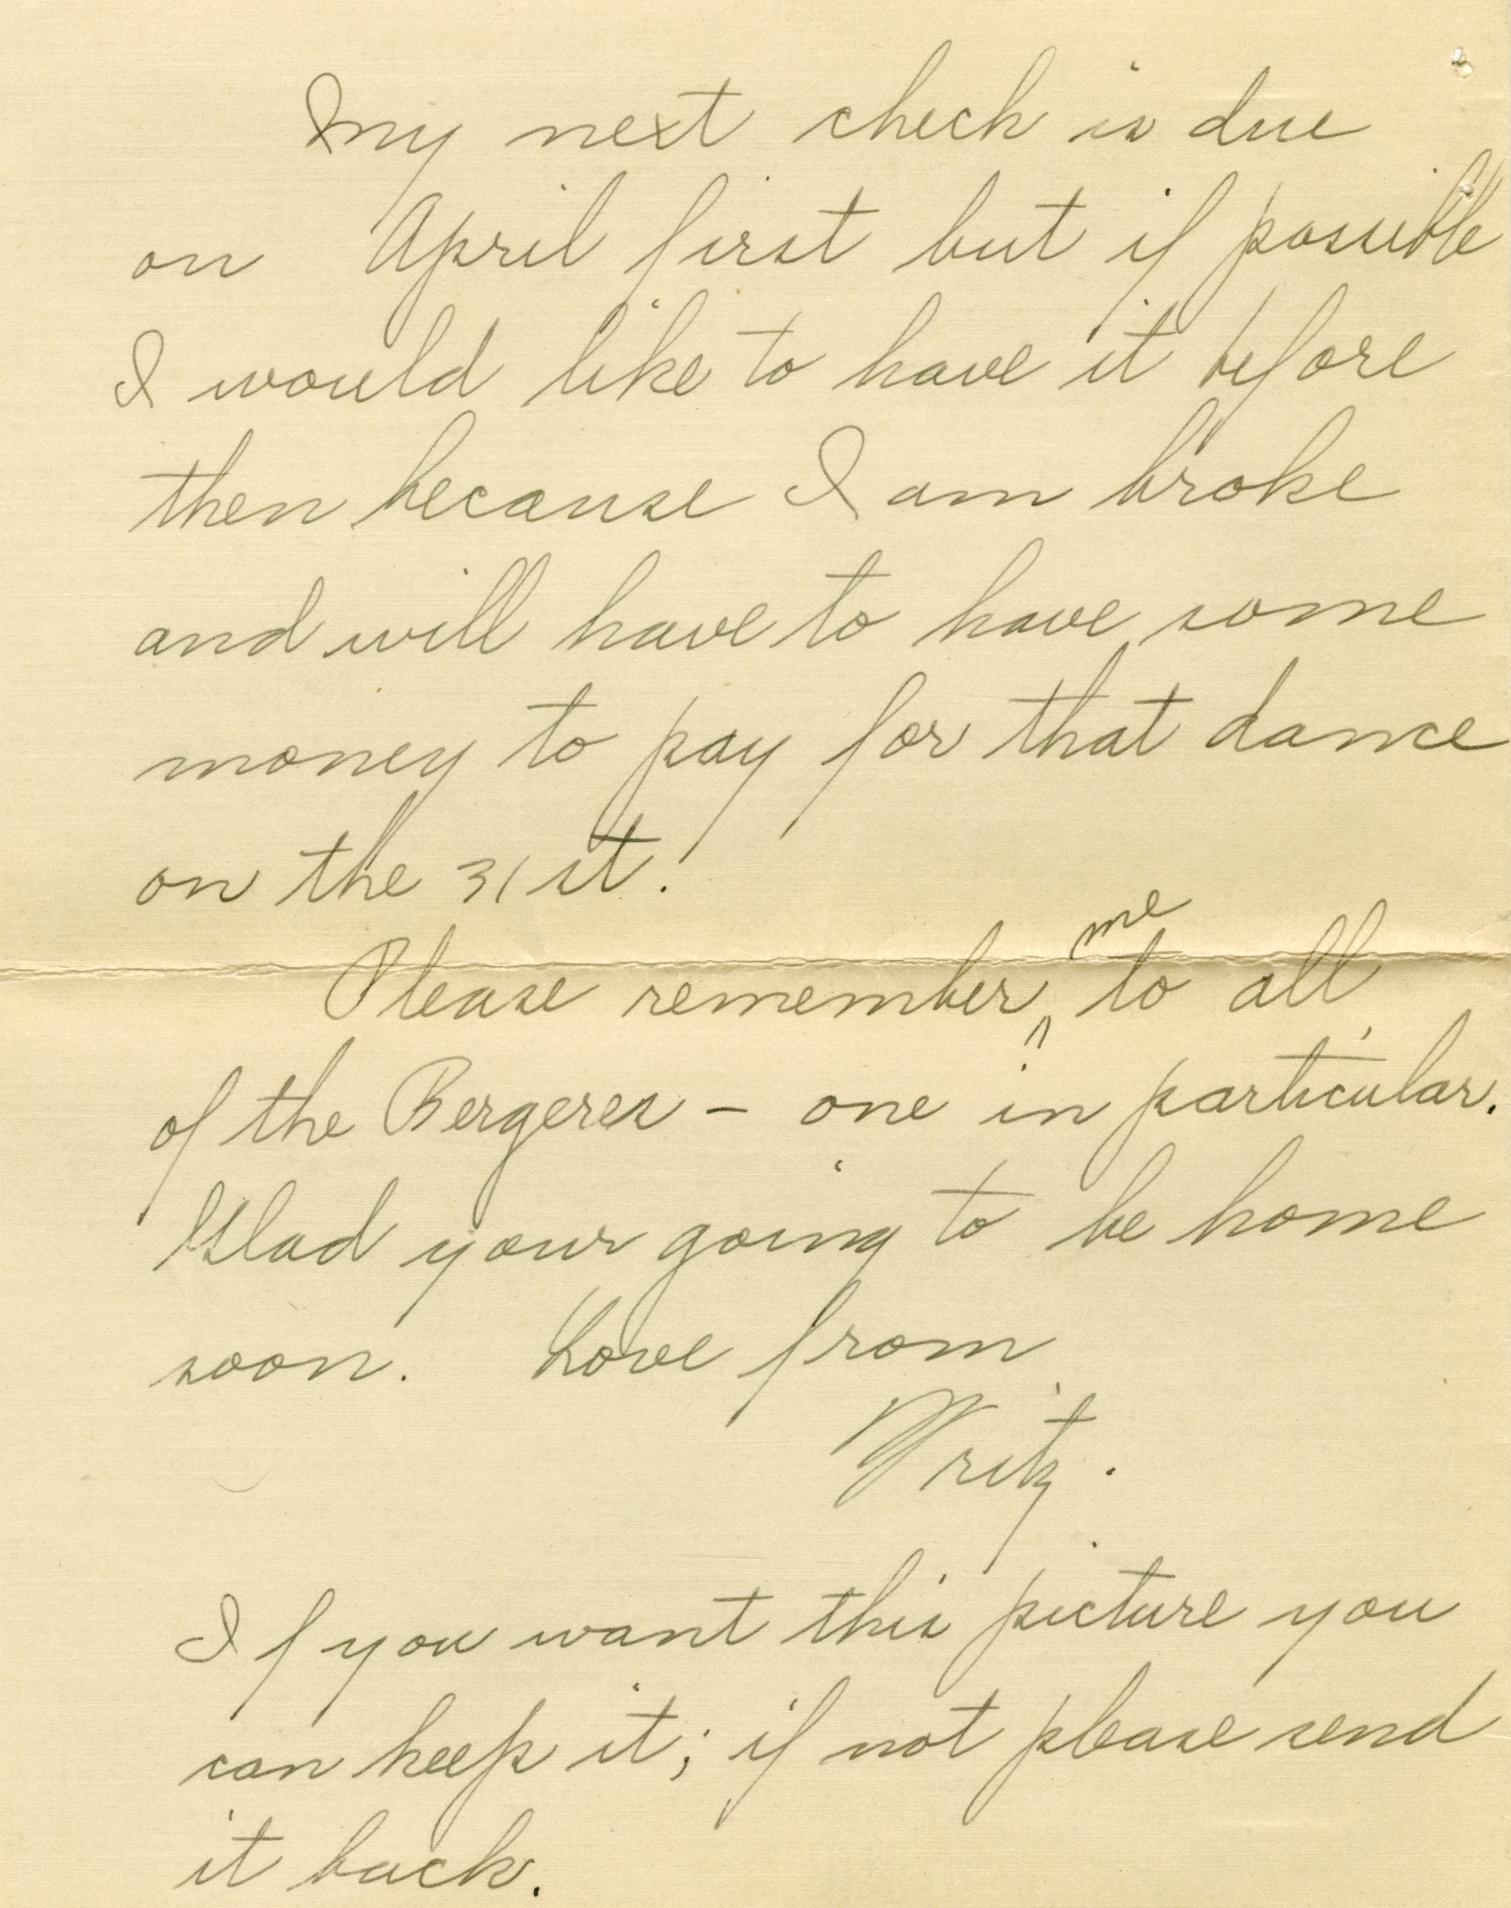 My next check is due
on April first but if possible
I would like to have it before
then because I am broke
and will have to have some
money to pay for that dance
on the 31st.
Please remember me to all
of the Bergeres – one in particular.
Glad your going to be home
soon. Love from
Fritz.
If you want this picture you
can keep it; if not please send
it back.